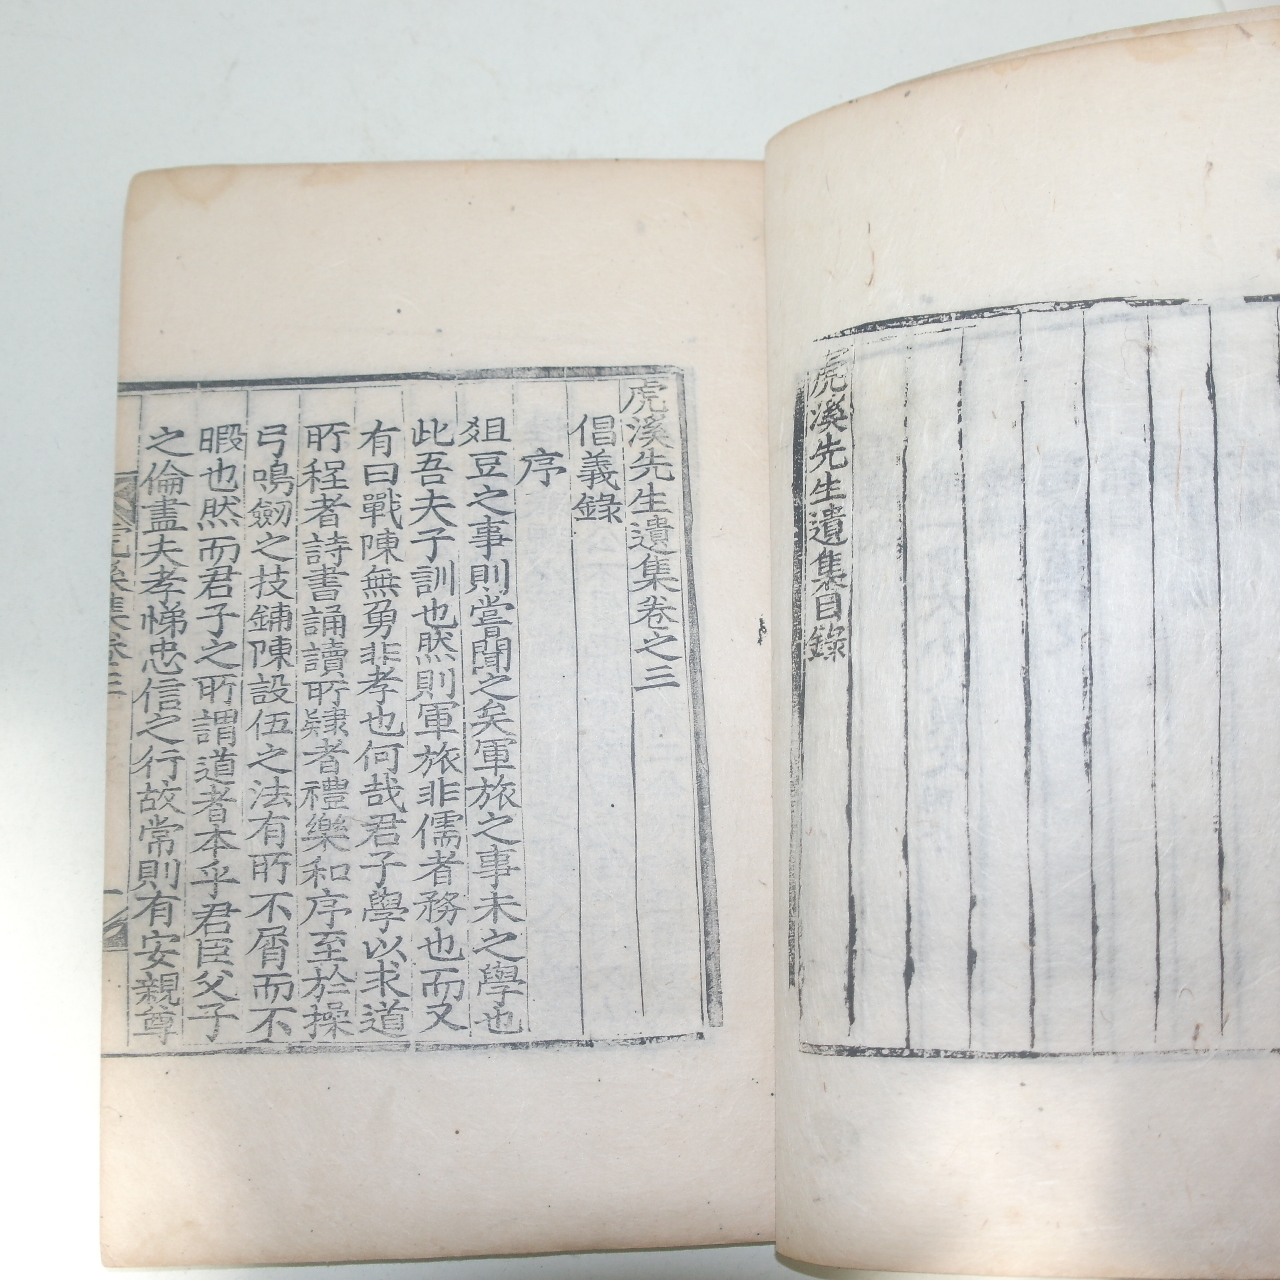 虎溪先生遺集目錄
虎溪先生遺集卷之三
倡義錄
序
俎豆之事則嘗聞之矣軍旅之事未之學也
此吾夫子訓也然則軍旅非儒者務也而又
有曰戰陳無勇非孝也何哉君子學以求道
所程者詩書誦讀所隷者禮樂和序至於操
弓鳴劒之技鋪陳設伍之法有所不屑而不
暇也然而君子之所謂道者本乎君臣父子
之倫盡夫孝悌忠信之行故常則有安親尊
虎溪集卷三